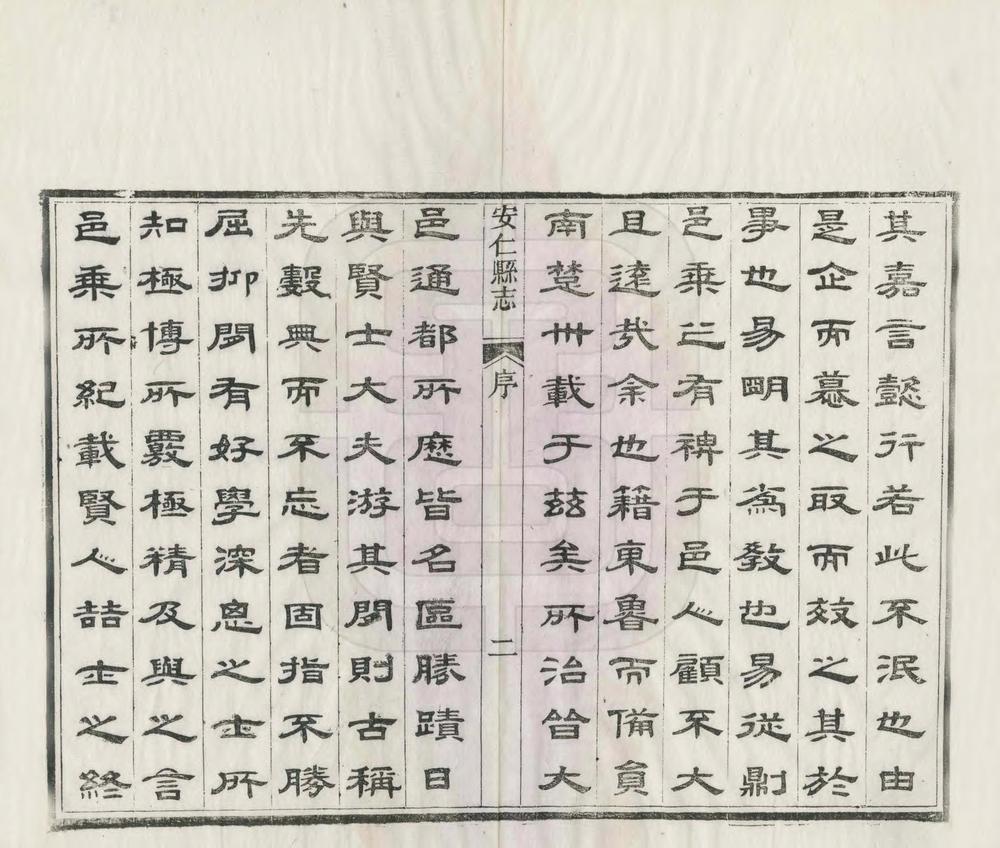 其嘉言懿行若此不泯也由
是企而慕之取而效之其於
事也易明其為教也易從則
邑乘之有裨于邑人顧不大
且遠哉余也籍東魯而備員
南楚卅載于茲矣所治皆大
安仁縣志 序 二
邑通都所歷皆名區勝蹟日
與賢士大夫游其間則古稱
先數典而不忘者固指不勝
屈抑間有好學深思之士所
知極博所覈極精及與之言
邑乘所紀載賢人喆士之終